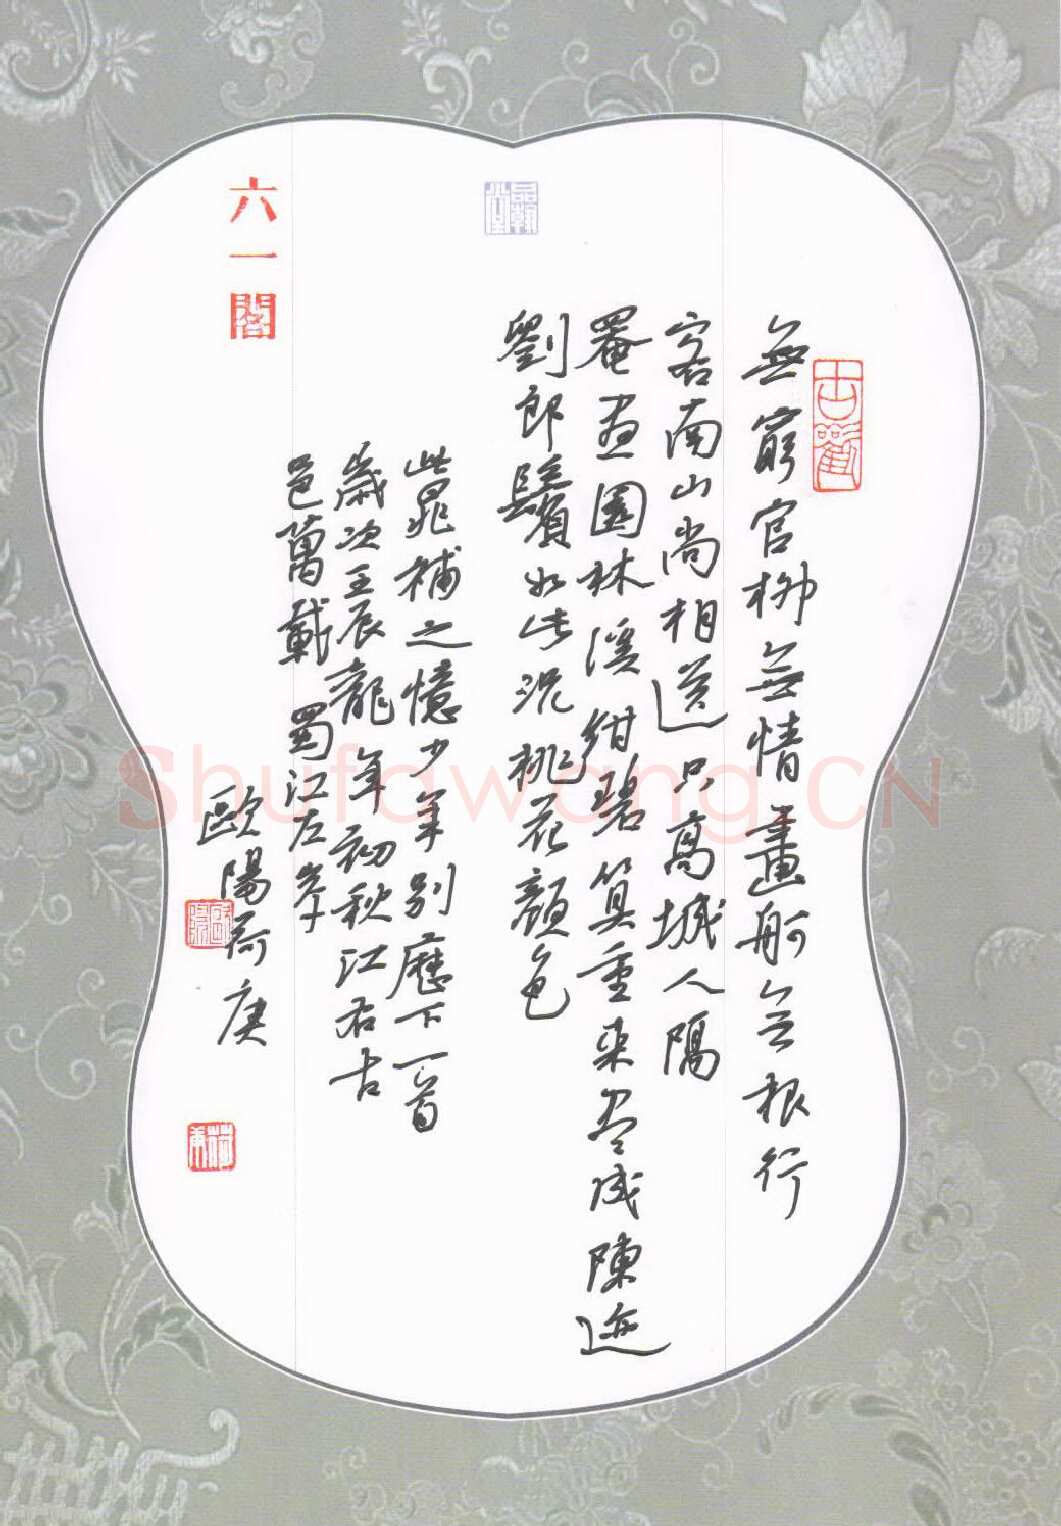 無窮官柳無情畫舸無根行
客南山尚相送只高城人隔
罨画園林溪紺碧算重来尽成陳迹
劉郎鬢如此況桃花顔色
此晁補之憶少年別歷下一首
歲次壬辰龍年初秋江右古
邑萬載蜀江左岸
歐陽荷庚
六一閣
品翰堂
歐陽
荷庚
Shufawang.CN